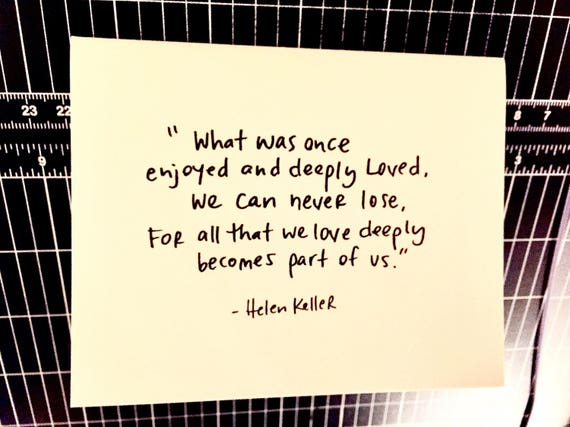 23 22
9
8 7
3
" What was once
enjoyed and deeply Loved,
we can never lose,
For all that we love deeply
becomes part of us."
- Helen Keller